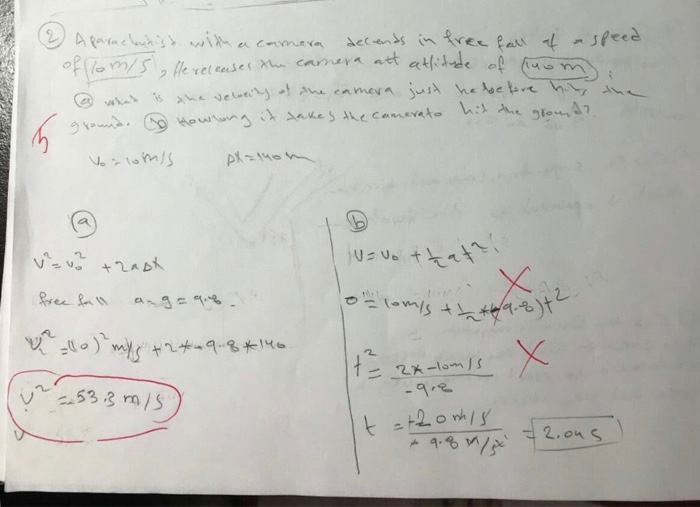 ② A parachutist with a camera decends in free fall of a speed
of 10 m/s, He releases the camera att altitude of 140 m
ⓐ what is the velocity of the camera just he before hits the
ground. ⓑ How long it takes the camera to hit the ground?
5
V₀ = 10 m/s ΔX = 140 m
ⓐ
V² = V₀² + 2aΔX
free fall a = g = 9.8.
V² = (10)² m/s + 2*-9.8*140
V² = 53.3 m/s
V
ⓑ
V = V₀ + ½at²
0 = 10 m/s + ½*(-9.8)t²
t² = 2*-10m/s / -9.8
t = +20 m/s / 9.8 m/s² = 2.04 s